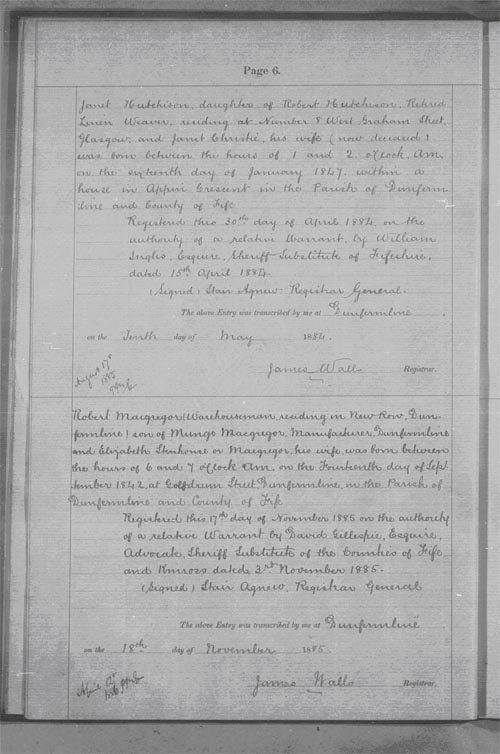 Page 6.
Janet Hutchison, daughter of Robert Hutchison, Retired
Linen Weaver, residing at Number 8 West Graham Street,
Glasgow, and Janet Christie, his wife (now deceased)
was born between the hours of 1 and 2 o'Clock, Am.
on the sixteenth day of January 1847, within a
house in Appin Crescent in the Parish of Dunferm
line and County of Fife
Registered this 30th day of April 1884, on the
authority of a relative Warrant, by William
Inglis, Esquire, Sheriff-Substitute of Fifeshire,
dated 15th April 1884.
(Signed) Stair Agnew. Registrar General.
The above Entry was transcribed by me at Dunfermline
on the Tenth day of May 1884.
James Walls Registrar.
August 17th
1885
Robert Macgregor (Warehouseman, residing in New Row, Dun-
fermline) son of Mungo Macgregor, Manufacturer, Dunfermline
and Elizabeth Stenhouse or Macgregor, his wife, was born between
the hours of 6 and 7 o'Clock Am. on the Fourteenth day of Sept
ember 1842, at Golfdrum Street, Dunfermline, in the Parish of
Dunfermline and County of Fife
Registered this 17th day of November 1885 on the authority
of a relative Warrant by David Gillespie, Esquire,
Advocate, Sheriff Substitute of the Counties of Fife
and Kinross dated 3rd November 1885.
(Signed) Stair Agnew, Registrar General
The above Entry was transcribed by me at Dunfermline
on the 18th day of November 1885.
James Walls Registrar.